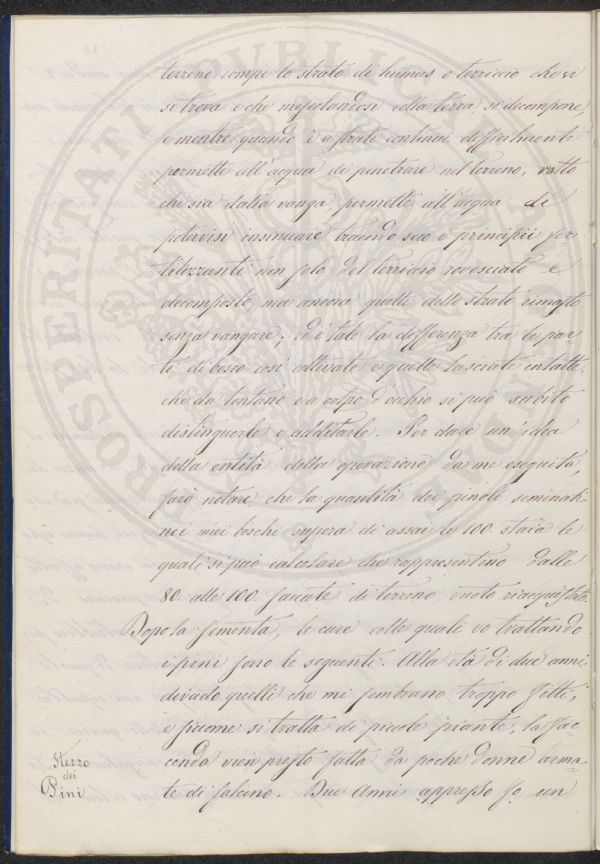 terreno rompe lo strato di humus o terriccio che vi
si trova e che mescolandosi colla terra, si decompone,
e mentre quando è a strati continui difficilmente
permette all'acqua di penetrare nel terreno, rotto
che sia dalla vanga, permette all'acqua di
potervisi insinuare traendo seco i principii fer-
tilizzanti non solo del terriccio rovesciato e
decomposto, ma ancora quelli dello strato rimasto
senza vangare; ed è tale la differenza tra le par-
ti di bosco così coltivate e quelle lasciate intatte,
che da lontano e a colpo d'occhio si può subito
distinguerle e additarle. Per dare un'idea
della entità della operazione da me eseguita,
farò notare, che la quantità dei pinoli seminati
nei miei boschi supera di assai le 100 staia le
quali si può calcolare che rappresentino dalle
80 alle 100 saccate di terreno vuoto riacquistato.
Dopo la sementa, le cure colle quali vo trattando
i pini sono le seguenti. Alla età di due anni
dirado quelli che mi sembrano troppo fitti,
e siccome si tratta di piccole piante, la fac-
cenda vien presto fatta da poche donne arma-
te di falcino. Due anni appresso fo un
Sterzo
dei
Pini
PROSPERITATI PUBLICAE AUGENDAE